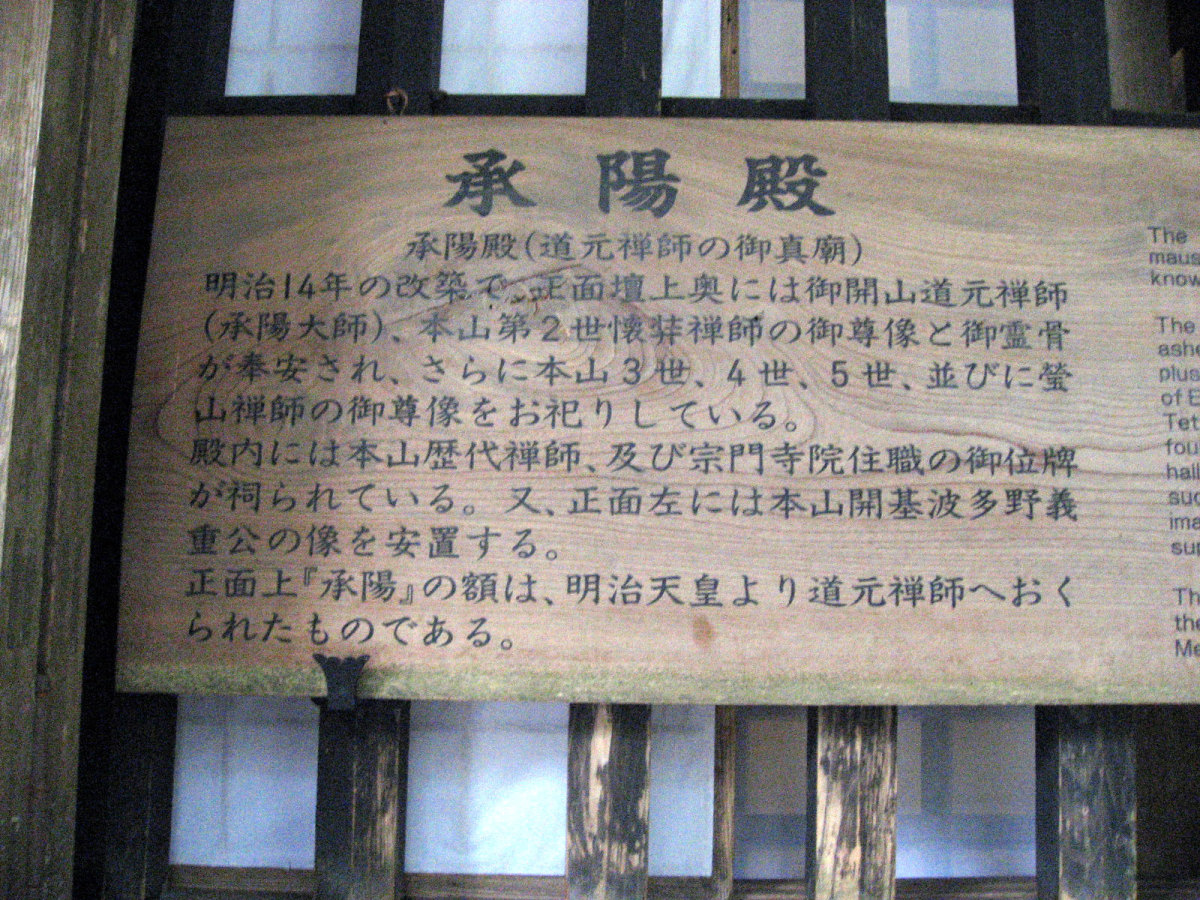 承陽殿
承陽殿(道元禅師の御真廟)
明治14年の改築で、正面壇上奥には御開山道元禅師
(承陽大師)、本山第2世懐弉禅師の御尊像と御霊骨
が奉安され、さらに本山3世、4世、5世、並びに瑩
山禅師の御尊像をお祀りしている。
殿内には本山歴代禅師、及び宗門寺院住職の御位牌
が祠られている。又、正面左には本山開基波多野義
重公の像を安置する。
正面上『承陽』の額は、明治天皇より道元禅師へおく
られたものである。
The
maus
know
The
ashe
plus
of E
Tet
fou
hall
suc
ima
sur
Th
the
Me